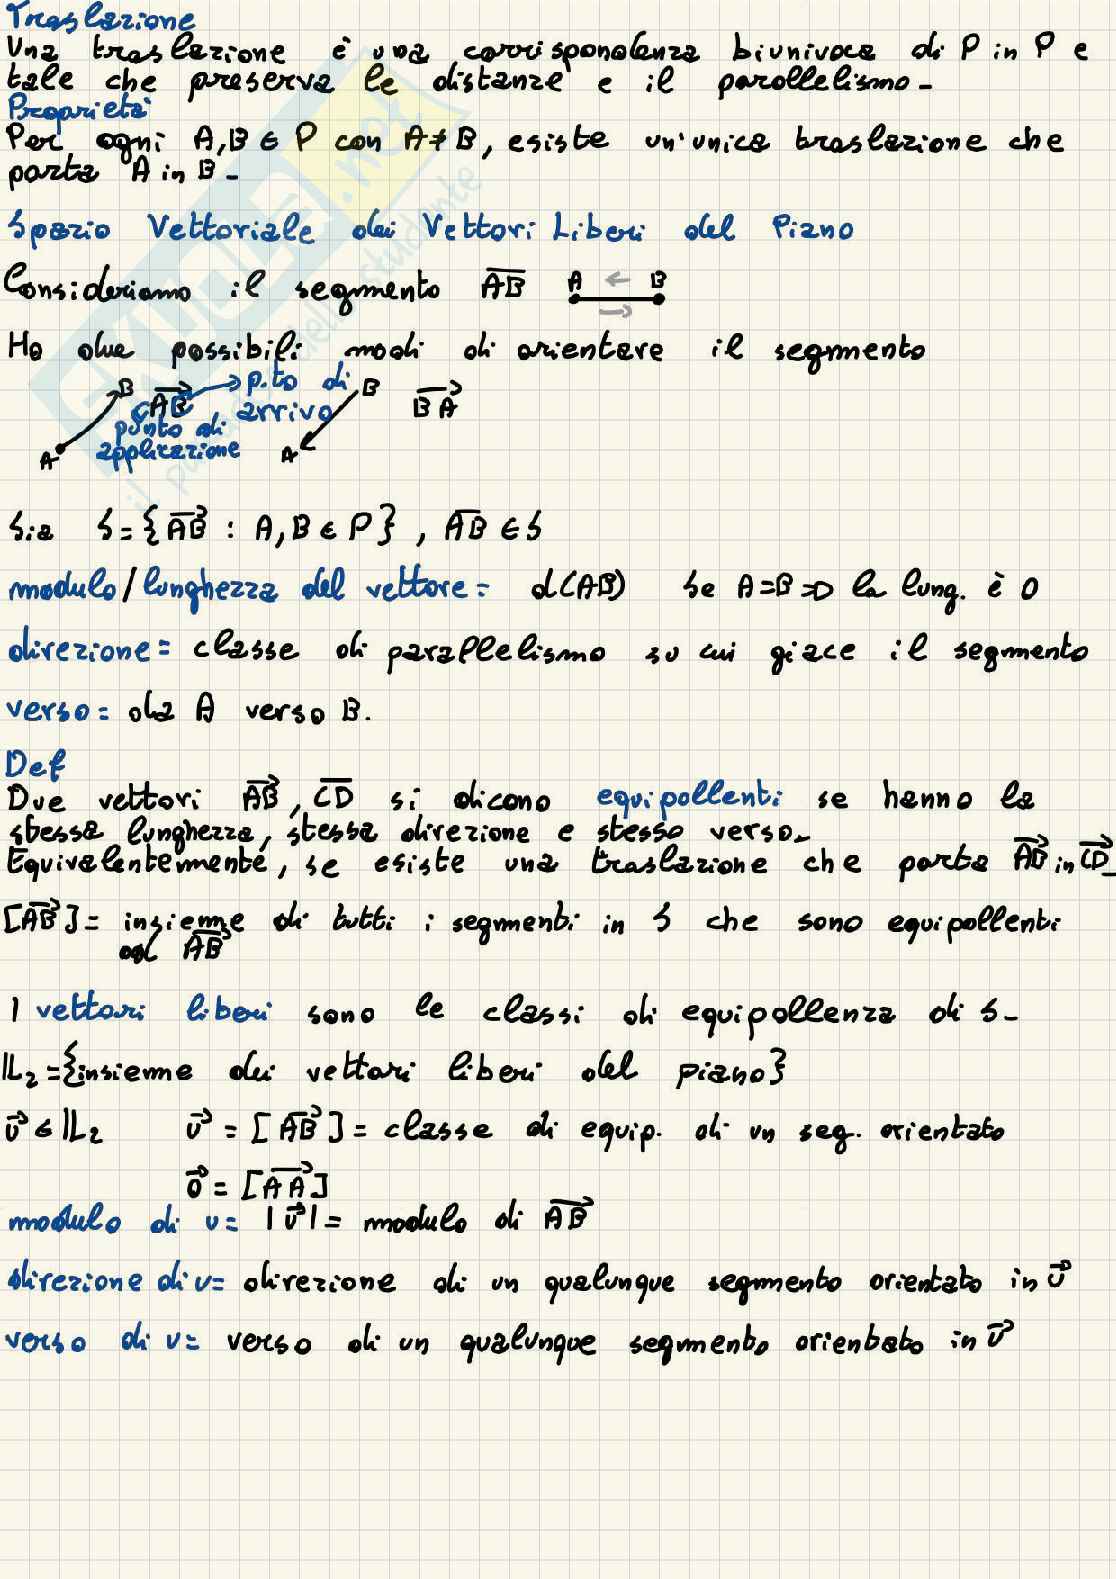 Traslazione
Una traslazione è una corrispondenza biunivoca di P in P e
tale che preserva le distanze e il parallelismo.
Proprietà
Per ogni A,B ∈ P con A≠B, esiste un'unica traslazione che
porta A in B.
Spazio Vettoriale dei Vettori Liberi del Piano
Consideriamo il segmento \overline{AB} A B
Ho due possibili modi di orientare il segmento
B \overrightarrow{AB} p.to di arrivo B \overrightarrow{BA}
punto di
applicazione
A A
Sia S={\overrightarrow{AB} : A,B ∈ P} , \overline{AB} ∈ S
modulo/lunghezza del vettore= d(AB) Se A=B => la lung. è 0
direzione= classe di parallelismo su cui giace il segmento
verso= da A verso B.
Def
Due vettori \overrightarrow{AB}, \overline{CD} si dicono equipollenti se hanno la
stessa lunghezza, stessa direzione e stesso verso.
Equivalentemente, se esiste una traslazione che porta \overrightarrow{AB} in \overrightarrow{CD}.
[\overrightarrow{AB}]= insieme di tutti i segmenti in S che sono equipollenti
ad \overrightarrow{AB}
I vettori liberi sono le classi di equipollenza di S.
𝕃₂={insieme dei vettori liberi del piano}
\vec{v} ∈ 𝕃₂ \vec{v} = [\overrightarrow{AB}]= classe di equip. di un seg. orientato
\vec{0} = [\overrightarrow{AA}]
modulo di v= |\vec{v}|= modulo di \overrightarrow{AB}
direzione di v= direzione di un qualunque segmento orientato in \vec{v}
verso di v= verso di un qualunque segmento orientato in \vec{v}
SKUOLA.net
il paradiso dello studente